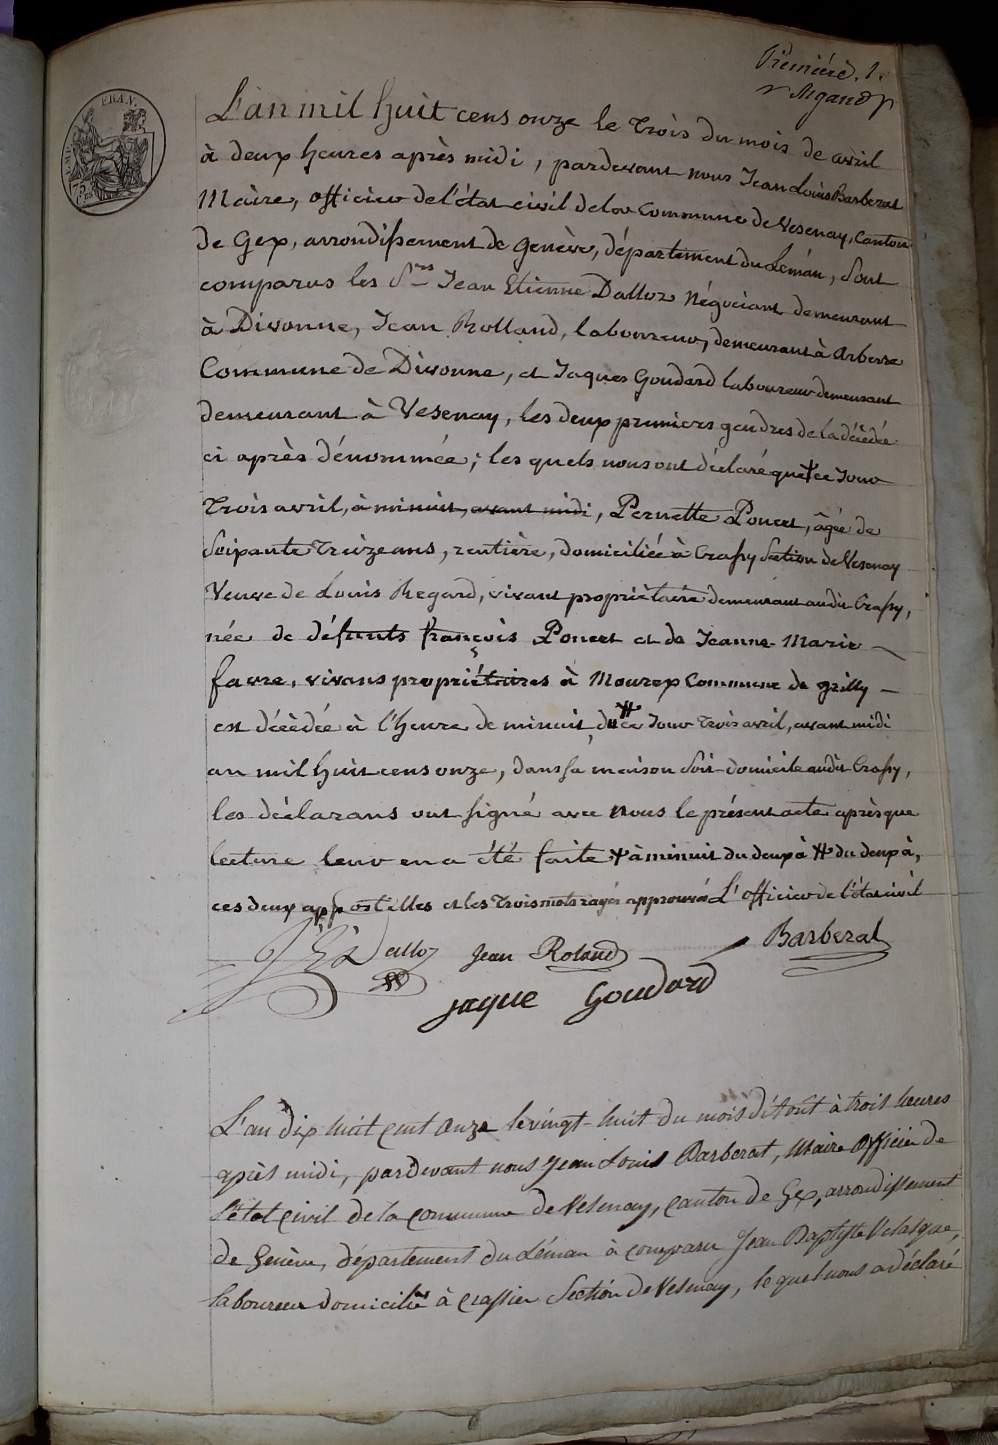 Première. 1.
FRAN.
75
L'an mil huit cens onze le trois du mois de avril
à deux heures après midi, pardevant nous Jean Louis Barberat
Maire, officier de l'état civil de la Commune de Vesenay, Canton
de Gex, arrondissement de genève, département du Léman, sont
comparus les S.rs Jean Etienne Dalloz Négociant demeurant
à Divonne, Jean Rolland, laboureur, demeurant à Arberre
Commune de Divonne, et Jaques Goudard laboureur demeurant
demeurant à Vesenay, les deux premiers gendres de la décédée
ci après dénommée; les quels nous ont déclaré que ce Jour
trois avril, à minuit, avant midi, Pernette Poncet, âgée de
soixante treize ans, rentière, domiciliée à Crassy Section de Vesenay
Veuve de Louis Regard, vivant propriétaire demeurant audit Crassy,
née de défunts françois Poncet et de Jeanne-Marie
favre, vivans propriétaires à Mourex Commune de grilly
est décédée à l'heure de minuit, du ce Jour trois avril, avant midi
an mil huit cens onze, dans sa maison soit domicile audit Crassy,
les déclarans ont signé avec nous le présent acte après que
lecture leur en a été faite à minuit du deux à du deux à,
ces deux appostilles et les trois mots rayés approuvés L'officier de l'état civil
J E Dalloz Jean Roland Barberat
jaque Goudard
L'an dix huit cent onze le vingt-huit du mois d'Août à trois heures
après midi, pardevant nous Jean Louis Barberat, Maire Officier de
l'état civil de la commune de Vesenay, canton de Gex, arrondissement
de Genève, département du Léman à comparu Jean Baptiste
laboureur domicilié à Crassier Section de Vesenay, lequel nous a déclaré